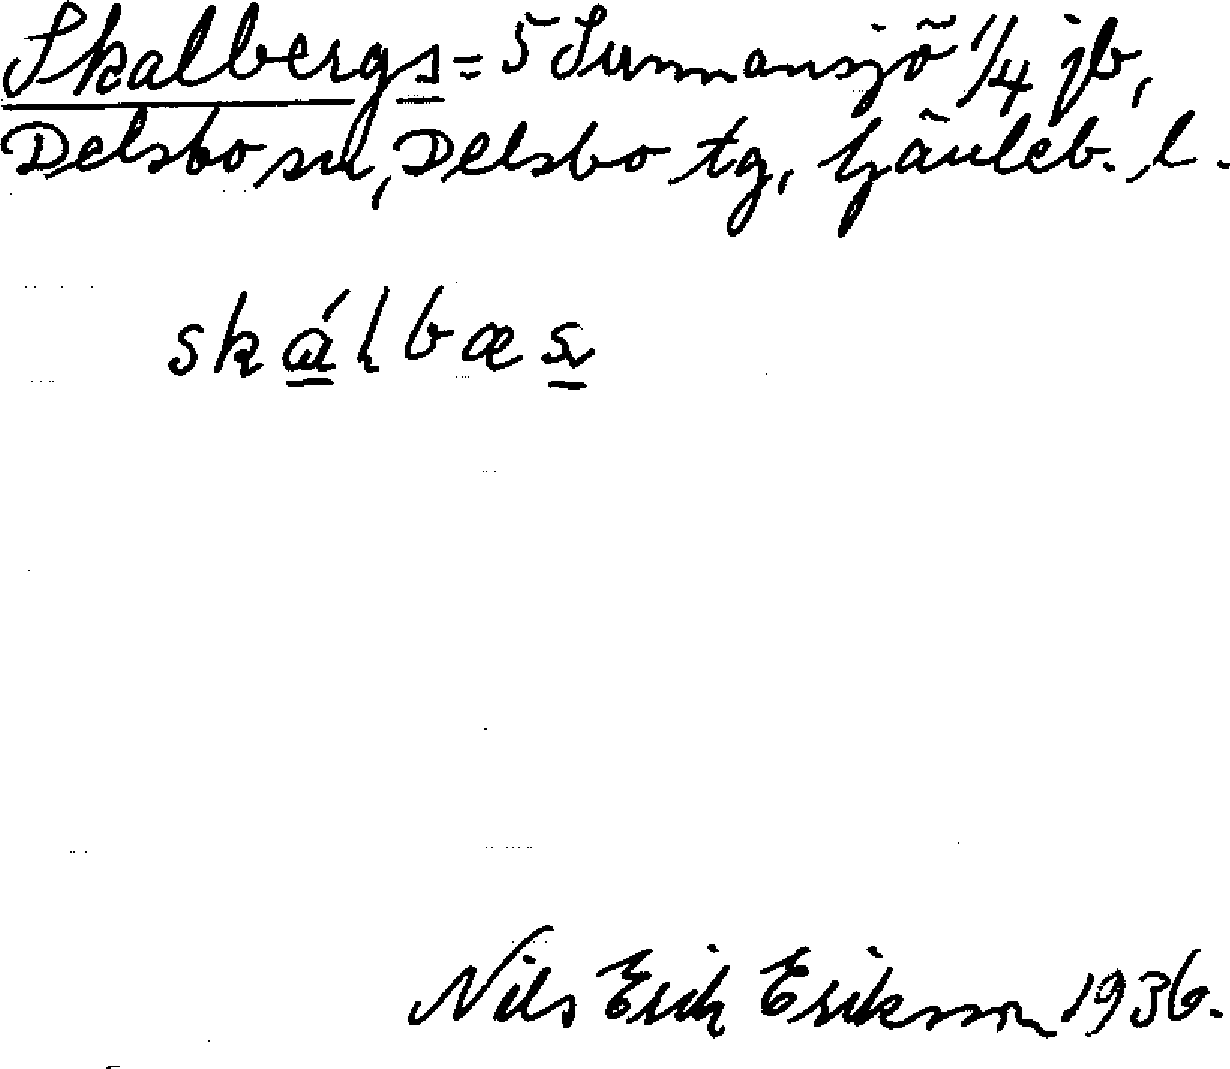 Skalbergs = 5 Sunnansjö 1/4 jb,
Delsbo sn, Delsbo tg, Gävleb. l.
skálbæs
Nils Erik Eriksson 1936.